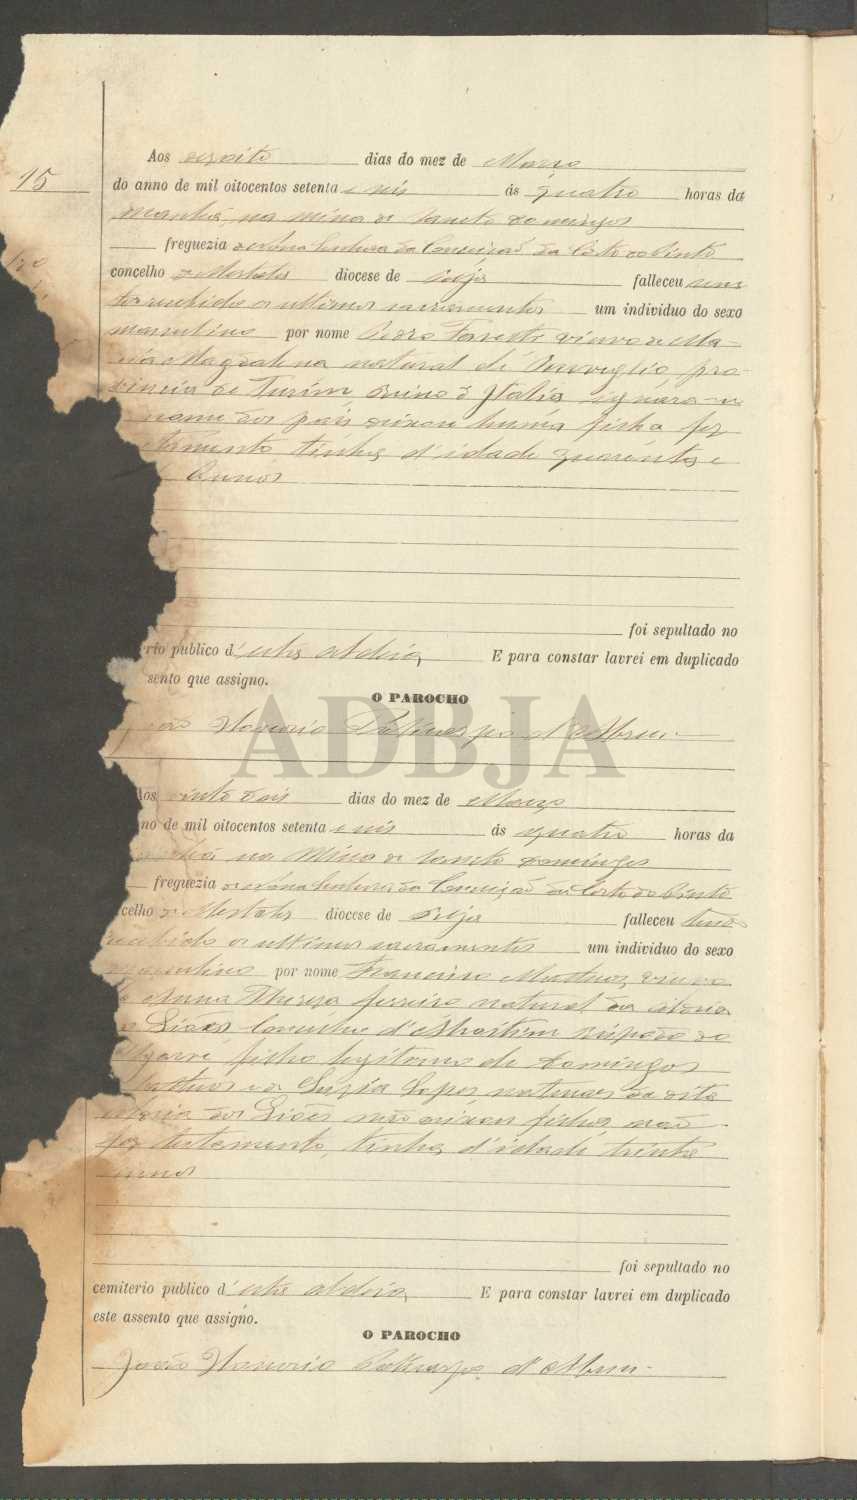 15
Aos dezoito dias do mez de Março
do anno de mil oitocentos setenta e seis ás quatro horas da
manhã, na mina de Sancto Domingos
freguezia de Nossa Senhora da Conceição da Côrte do Pinto
concelho de Mertola diocese de Beja falleceu sem
ter recebido os ultimos sacramentos um individuo do sexo
masculino por nome Pedro viuvo de Ma-
ria Magdalena natural de pro-
vincia de Turim Reino d'Italia ignora-se
nome dos pais deixou huma filha fez
tinha d'idade quarenta e
annos
foi sepultado no
rio publico d'esta aldeia E para constar lavrei em duplicado
sento que assigno.
O PAROCHO
Honorio d'Abreu
ADBJA
Aos vinte dois dias do mez de Março
no de mil oitocentos setenta e seis ás quatro horas da
na Mina de Sancto Domingos
freguezia de Nossa Senhora da Conceição da Côrte do Pinto
celho de Mertola diocese de Beja falleceu tendo
recebido os ultimos sacramentos um individuo do sexo
masculino por nome Francisco Matheus, viuvo
Anna Thereza natural da aldeia
Concelho d' bispado do
filho legitimo de Domingos
e de Luzia Lopes naturaes da dita
aldeia dos não deixou filhos não
fez testamento, tinha d'idade trinta
annos
foi sepultado no
cemiterio publico d'esta aldeia E para constar lavrei em duplicado
este assento que assigno.
O PAROCHO
João Honorio d'Abreu